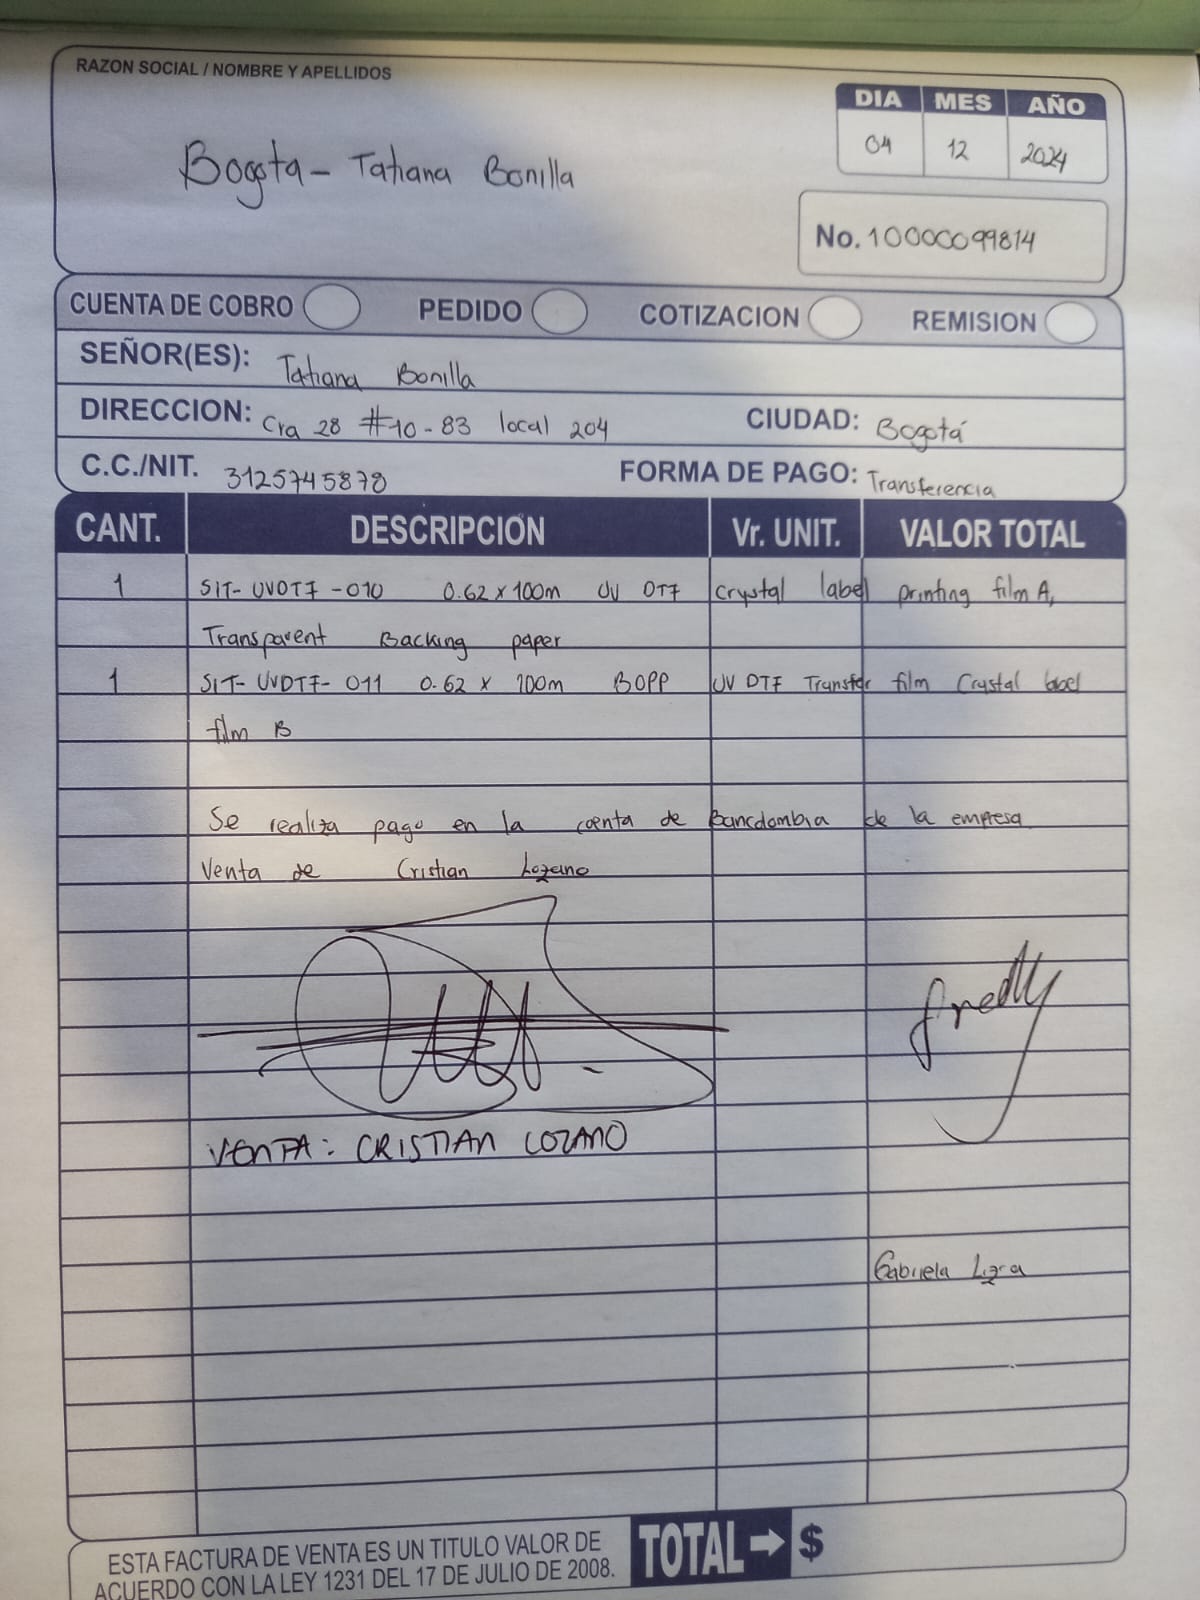 RAZON SOCIAL / NOMBRE Y APELLIDOS
Bogota - Tatiana Bonilla
DIA MES AÑO
04 12 2024
No. 10000099814
CUENTA DE COBRO PEDIDO COTIZACION REMISION
SEÑOR(ES): Tatiana Bonilla
DIRECCION: Cra 28 #10-83 local 204 CIUDAD: Bogotá
C.C./NIT. 3125745878 FORMA DE PAGO: Transferencia
CANT. DESCRIPCIÓN Vr. UNIT. VALOR TOTAL
1 SIT-UVDTF-010 0.62 x 100m UV DTF Crystal label printing film A,
Transparent Backing paper
1 SIT-UVDTF-011 0.62 x 100m BOPP UV DTF Transfer film Crystal label
film B
Se realiza pago en la cuenta de Bancolombia de la empresa
Venta de Cristian Lozano
fredy
VENTA: CRISTIAN LOZANO
Gabriela
ESTA FACTURA DE VENTA ES UN TITULO VALOR DE
ACUERDO CON LA LEY 1231 DEL 17 DE JULIO DE 2008.
TOTAL → $